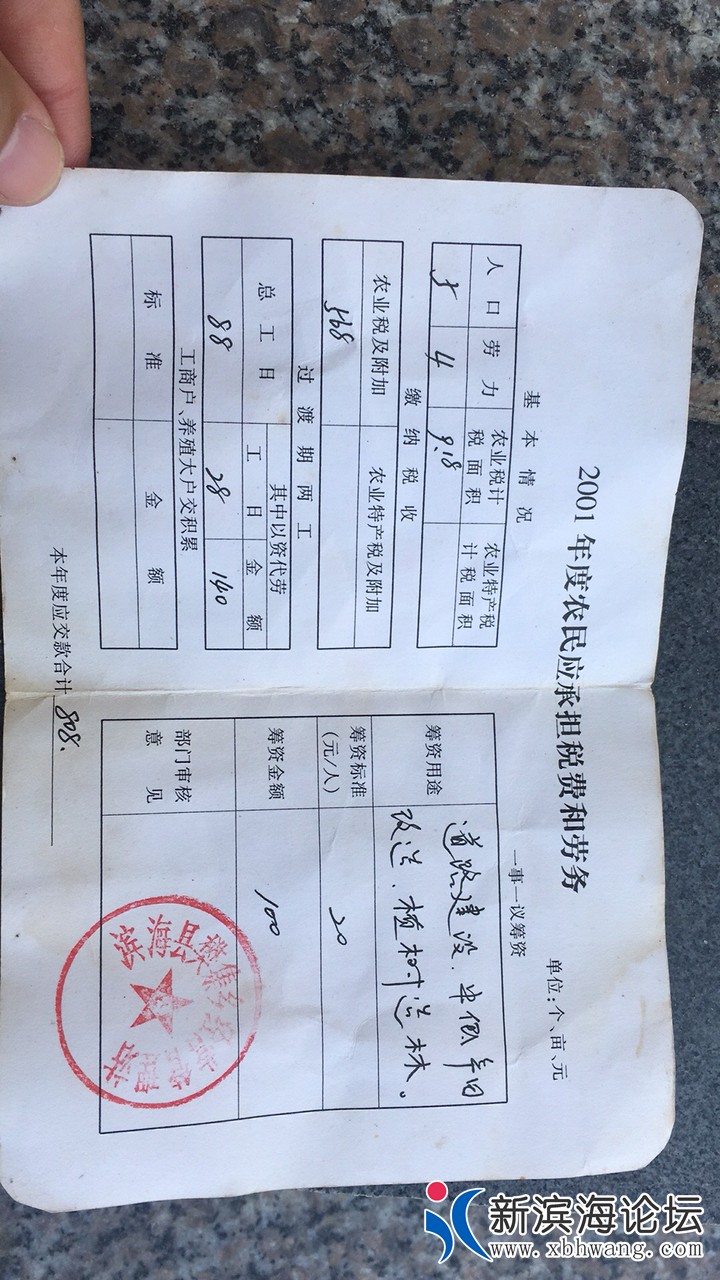 2001年度农民应承担税费和劳务
单位:个、亩、元
基本情况
人口 劳力 农业税计税面积 农业特产税计税面积
5 4 9.18
缴纳税收
农业税及附加 农业特产税及附加
568
过渡期两工
总工日 其中以资代劳
工日 金额
88 28 140
工商户、养殖大户交积累
标准 金额
本年度应交款合计 808.
一事一议筹资
筹资用途 道路建设、中低产田
改造、植树造林。
筹资标准(元/人) 20
筹资金额 100
部门审核意见
滨海县樊集乡
管理站
新滨海论坛
www.xbhwang.com